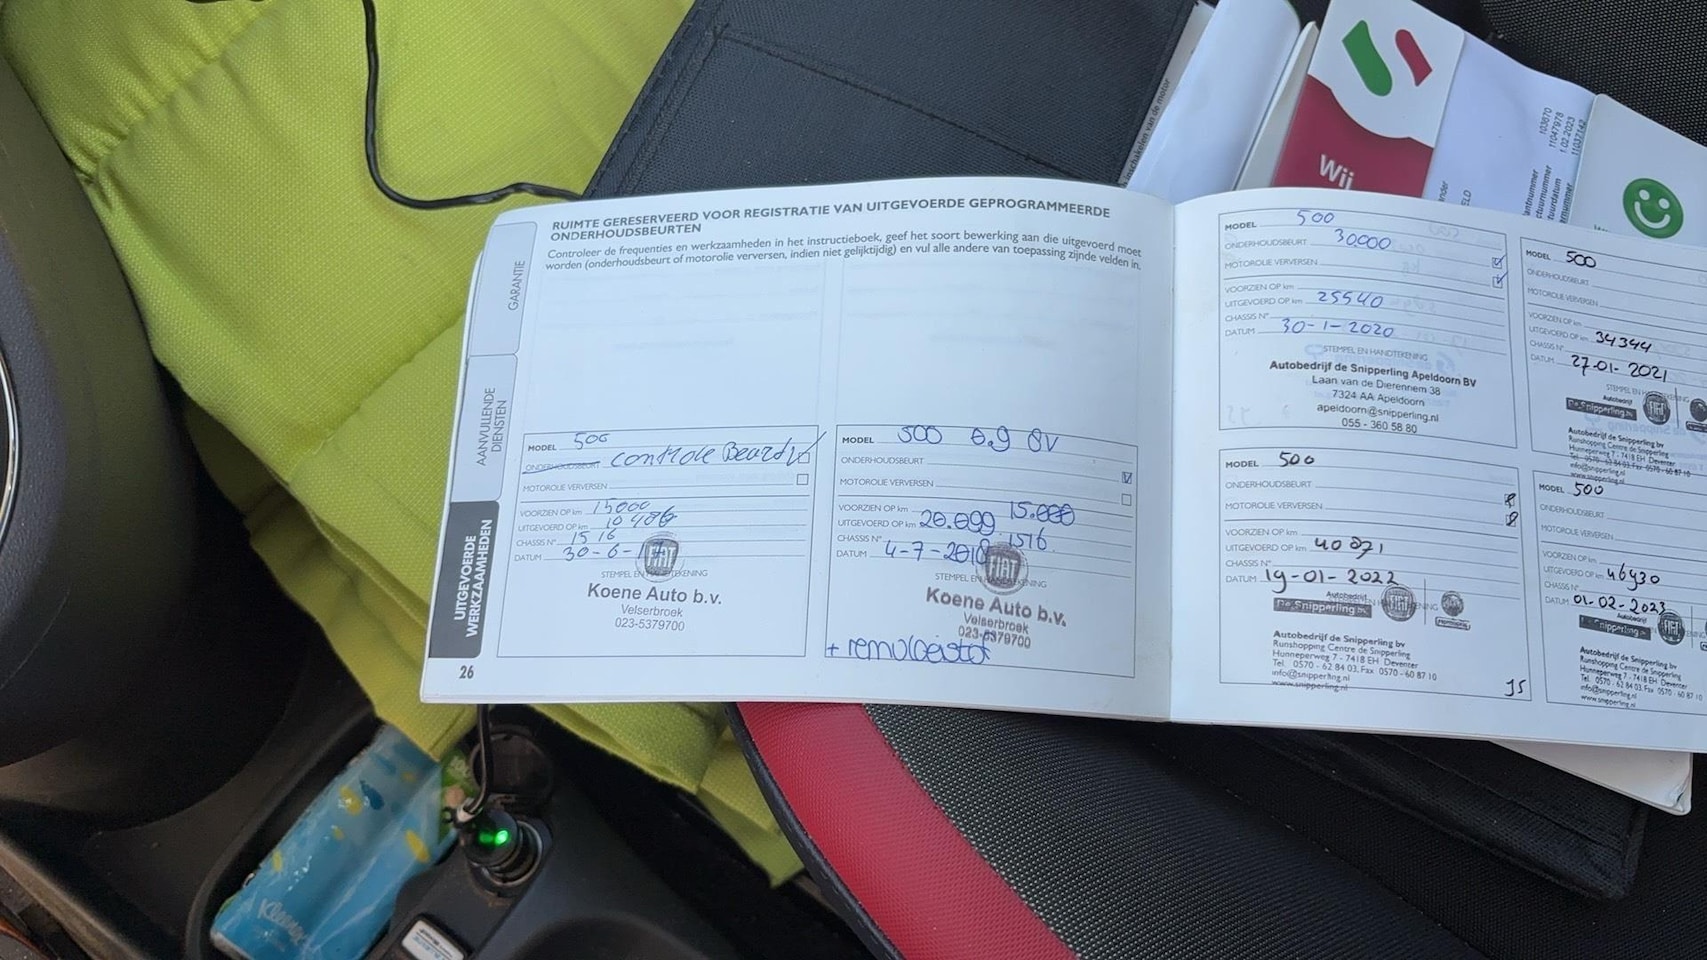 RUIMTE GERESERVEERD VOOR REGISTRATIE VAN UITGEVOERDE GEPROGRAMMEERDE
ONDERHOUDSBEURTEN
Controleer de frequenties en werkzaamheden in het instructieboek, geef het soort bewerking aan die uitgevoerd moet
worden (onderhoudsbeurt of motorolie verversen, indien niet gelijktijdig) en vul alle andere van toepassing zijnde velden in.
GARANTIE
AANVULLENDE
DIENSTEN
UITGEVOERDE
WERKZAAMHEDEN
26
MODEL 500
ONDERHOUDSBEURT controle Beurt
MOTOROLIE VERVERSEN
VOORZIEN OP km 15000
UITGEVOERD OP km 10486
CHASSIS N° 1516
DATUM 30-6-17
STEMPEL EN HANDTEKENING
FIAT
Koene Auto b.v.
Velserbroek
023-5379700
MODEL 500 0.9 8V
ONDERHOUDSBEURT
MOTOROLIE VERVERSEN
VOORZIEN OP km 15.000
UITGEVOERD OP km 20.099
CHASSIS N° 1516
DATUM 4-7-2018
STEMPEL EN HANDTEKENING
FIAT
Koene Auto b.v.
Velserbroek
023-5379700
+ remvloeistof
MODEL 500
ONDERHOUDSBEURT 30.000
MOTOROLIE VERVERSEN
VOORZIEN OP km
UITGEVOERD OP km 25540
CHASSIS N°
DATUM 30-1-2020
STEMPEL EN HANDTEKENING
Autobedrijf de Snipperling Apeldoorn BV
Laan van de Dierenriem 38
7324 AA Apeldoorn
apeldoorn@snipperling.nl
055 - 360 58 80
MODEL 500
ONDERHOUDSBEURT
MOTOROLIE VERVERSEN
VOORZIEN OP km
UITGEVOERD OP km 34344
CHASSIS N°
DATUM 27-01-2021
STEMPEL EN HANDTEKENING
Autobedrijf
De Snipperling bv
FIAT
Autobedrijf de Snipperling bv
Runshopping Centre de Snipperling
Hunneperweg 7 - 7418 EH Deventer
Tel. 0570 - 62 84 03, Fax 0570 - 60 87 10
info@snipperling.nl
www.snipperling.nl
MODEL 500
ONDERHOUDSBEURT
MOTOROLIE VERVERSEN
VOORZIEN OP km
UITGEVOERD OP km 40871
CHASSIS N°
DATUM 19-01-2022
STEMPEL EN HANDTEKENING
Autobedrijf
De Snipperling bv
FIAT
Autobedrijf de Snipperling bv
Runshopping Centre de Snipperling
Hunneperweg 7 - 7418 EH Deventer
Tel. 0570 - 62 84 03, Fax 0570 - 60 87 10
info@snipperling.nl
www.snipperling.nl
MODEL 500
ONDERHOUDSBEURT
MOTOROLIE VERVERSEN
VOORZIEN OP km
UITGEVOERD OP km 46930
CHASSIS N°
DATUM 01-02-2023
Autobedrijf
Snipperling bv
FIAT
Autobedrijf de Snipperling bv
Runshopping Centre de Snipperling
Hunneperweg 7 - 7418 EH Deventer
Tel. 0570 - 62 84 03, Fax 0570 - 60 87 10
info@snipperling.nl
www.snipperling.nl
Wij
inschakelen van de motor
103670
11047978
1.02.2023
11037142
Kleenex